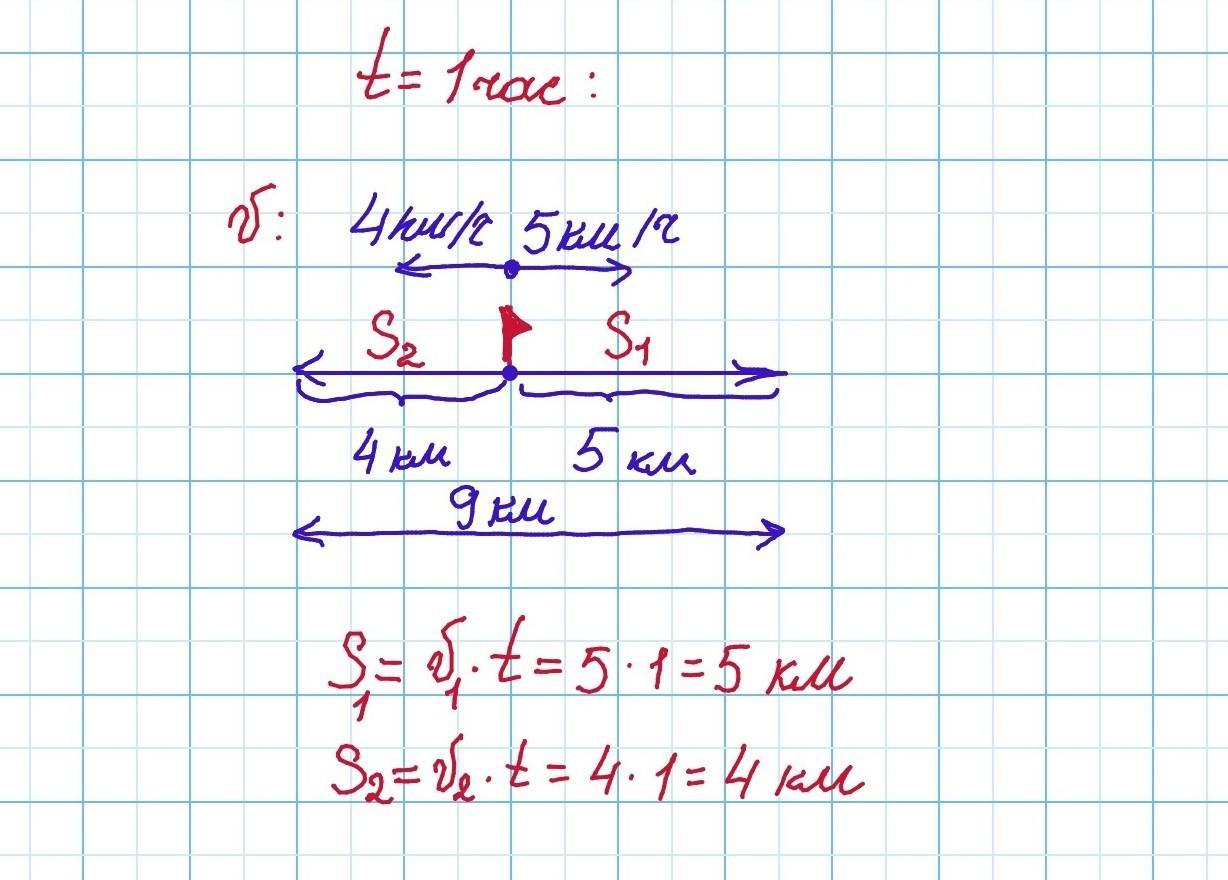 t = 1 час :
v: 4 км/ч 5 км/ч
S₂ S₁
4 км 5 км
9 км
S₁ = v₁ · t = 5 · 1 = 5 км
S₂ = v₂ · t = 4 · 1 = 4 км